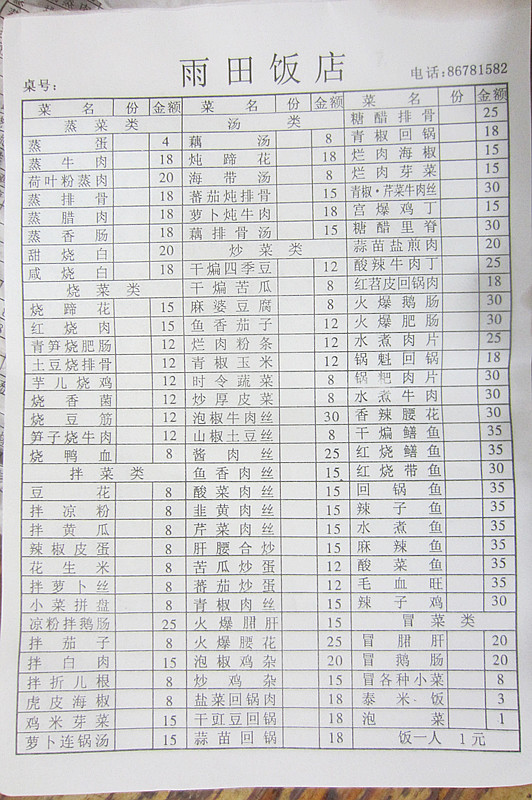 雨田饭店
桌号： 电话:86781582
菜名 份 金额
蒸菜类
蒸蛋 4
蒸牛肉 18
荷叶粉蒸肉 20
蒸排骨 18
蒸腊肉 18
蒸香肠 18
甜烧白 20
咸烧白 18
烧菜类
烧蹄花 15
红烧肉 15
青笋烧肥肠 12
土豆烧排骨 12
芋儿烧鸡 12
烧香菌 12
烧豆筋 12
笋子烧牛肉 12
烧鸭血 8
拌菜类
豆花 8
拌凉粉 8
拌黄瓜 8
辣椒皮蛋 8
花生米 8
拌萝卜丝 8
小菜拼盘 8
凉粉拌鹅肠 25
拌茄子 8
拌白肉 15
拌折儿根 8
虎皮海椒 8
鸡米芽菜 15
萝卜连锅汤 15
菜名 份 金额
汤类
藕汤 8
炖蹄花 18
海带汤 8
蕃茄炖排骨 15
萝卜炖牛肉 18
藕排骨汤 15
炒菜类
干煸四季豆 12
干煸苦瓜 8
麻婆豆腐 8
鱼香茄子 12
烂肉粉条 12
青椒玉米 12
时令蔬菜 8
炒厚皮菜 8
泡椒牛肉丝 30
山椒土豆丝 8
酱肉丝 25
鱼香肉丝 15
酸菜肉丝 15
韭黄肉丝 15
芹菜肉丝 15
肝腰合炒 15
苦瓜炒蛋 12
蕃茄炒蛋 12
青椒肉丝 15
火爆腒肝 15
火爆腰花 25
泡椒鸡杂 20
炒鸡杂 15
盐菜回锅肉 18
干豇豆回锅 18
蒜苗回锅 18
菜名 份 金额
糖醋排骨 25
青椒回锅 18
烂肉海椒 15
烂肉芽菜 15
青椒·芹菜牛肉丝 30
宫爆鸡丁 15
糖醋里脊 30
蒜苗盐煎肉 20
酸辣牛肉丁 25
红苕皮回锅肉 18
火爆鹅肠 30
火爆肥肠 30
水煮肉片 25
锅魁回锅 18
锅粑肉片 30
水煮牛肉 30
香辣腰花 30
干煸鳝鱼 35
红烧鳝鱼 35
红烧带鱼 30
回锅鱼 35
辣子鱼 35
水煮鱼 35
麻辣鱼 35
酸菜鱼 35
毛血旺 35
辣子鸡 30
冒菜类
冒腒肝 20
冒鹅肠 20
冒各种小菜 8
泰米饭 3
泡菜 1
饭一人 1元